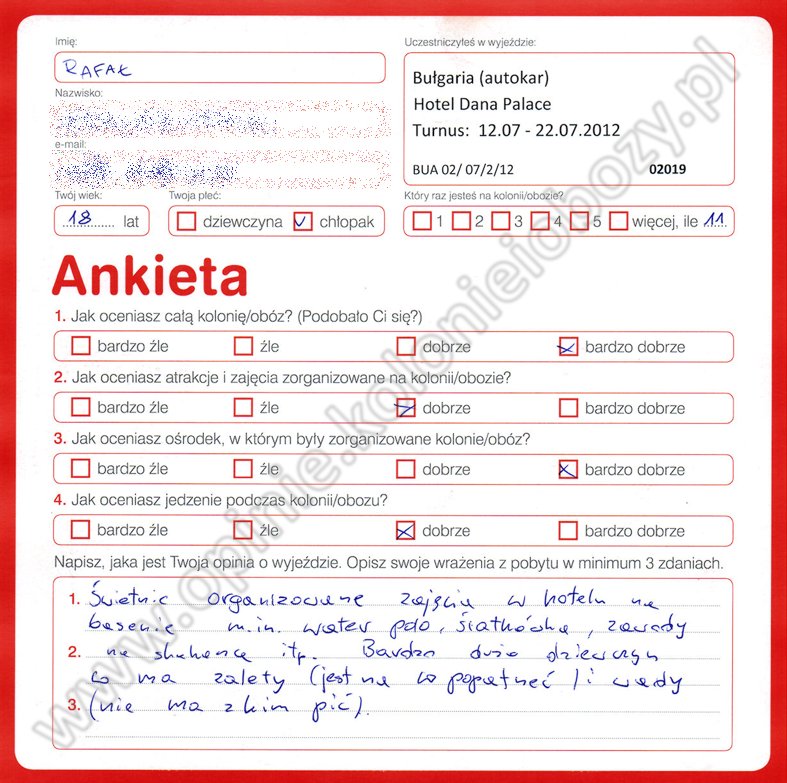 Imię:
RAFAŁ
Uczestniczyłeś w wyjeździe:
Bułgaria (autokar)
Hotel Dana Palace
Turnus: 12.07 - 22.07.2012
BUA 02/ 07/2/12 02019
Nazwisko:
e-mail:
Twój wiek:
18 lat
Twoja płeć:
dziewczyna chłopak
Który raz jesteś na kolonii/obozie?
1 2 3 4 5 więcej, ile 11
Ankieta
1. Jak oceniasz całą kolonię/obóz? (Podobało Ci się?)
bardzo źle źle dobrze bardzo dobrze
2. Jak oceniasz atrakcje i zajęcia zorganizowane na kolonii/obozie?
bardzo źle źle dobrze bardzo dobrze
3. Jak oceniasz ośrodek, w którym były zorganizowane kolonie/obóz?
bardzo źle źle dobrze bardzo dobrze
4. Jak oceniasz jedzenie podczas kolonii/obozu?
bardzo źle źle dobrze bardzo dobrze
Napisz, jaka jest Twoja opinia o wyjeździe. Opisz swoje wrażenia z pobytu w minimum 3 zdaniach.
1. Świetnie organizowane zajęcia w hotelu na
basenie m.in. water polo, siatkówka, zawody
2. na itp. Bardzo dużo dziewczyn
co ma zalety (jest na co popatrzeć) i wady
3. (nie ma z kim pić).
www.opinie.kolonieiobozy.pl